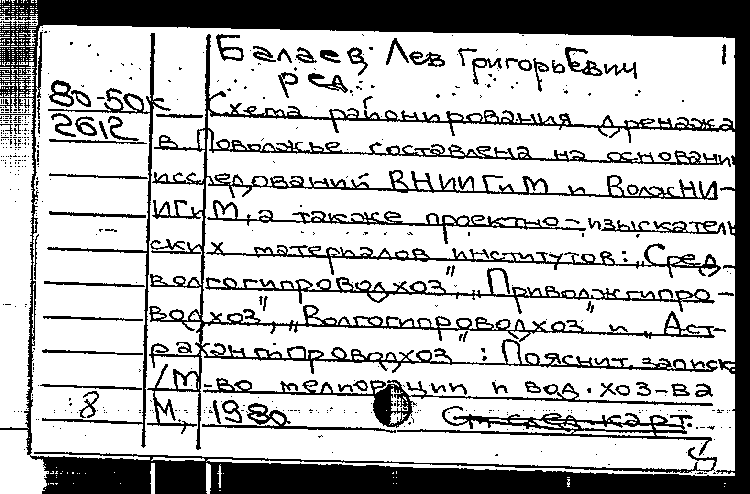 Балаев, Лев Григорьевич 1
ред.
80-50к Схема районирования дренажа
2612 в Поволжье составлена на основании
исследований ВНИИГиМ и ВолжНИ-
ИГиМ, а также проектно-изыскатель
ских материалов институтов: „Сред-
волгогипроводхоз", „Приволжгипро-
водхоз", „Волгогипроводхоз" и „Аст-
раханьгипроводхоз": Пояснит. записка
/М-во мелиорации и вод. хоз-ва
8 М., 1980. См след. карт.